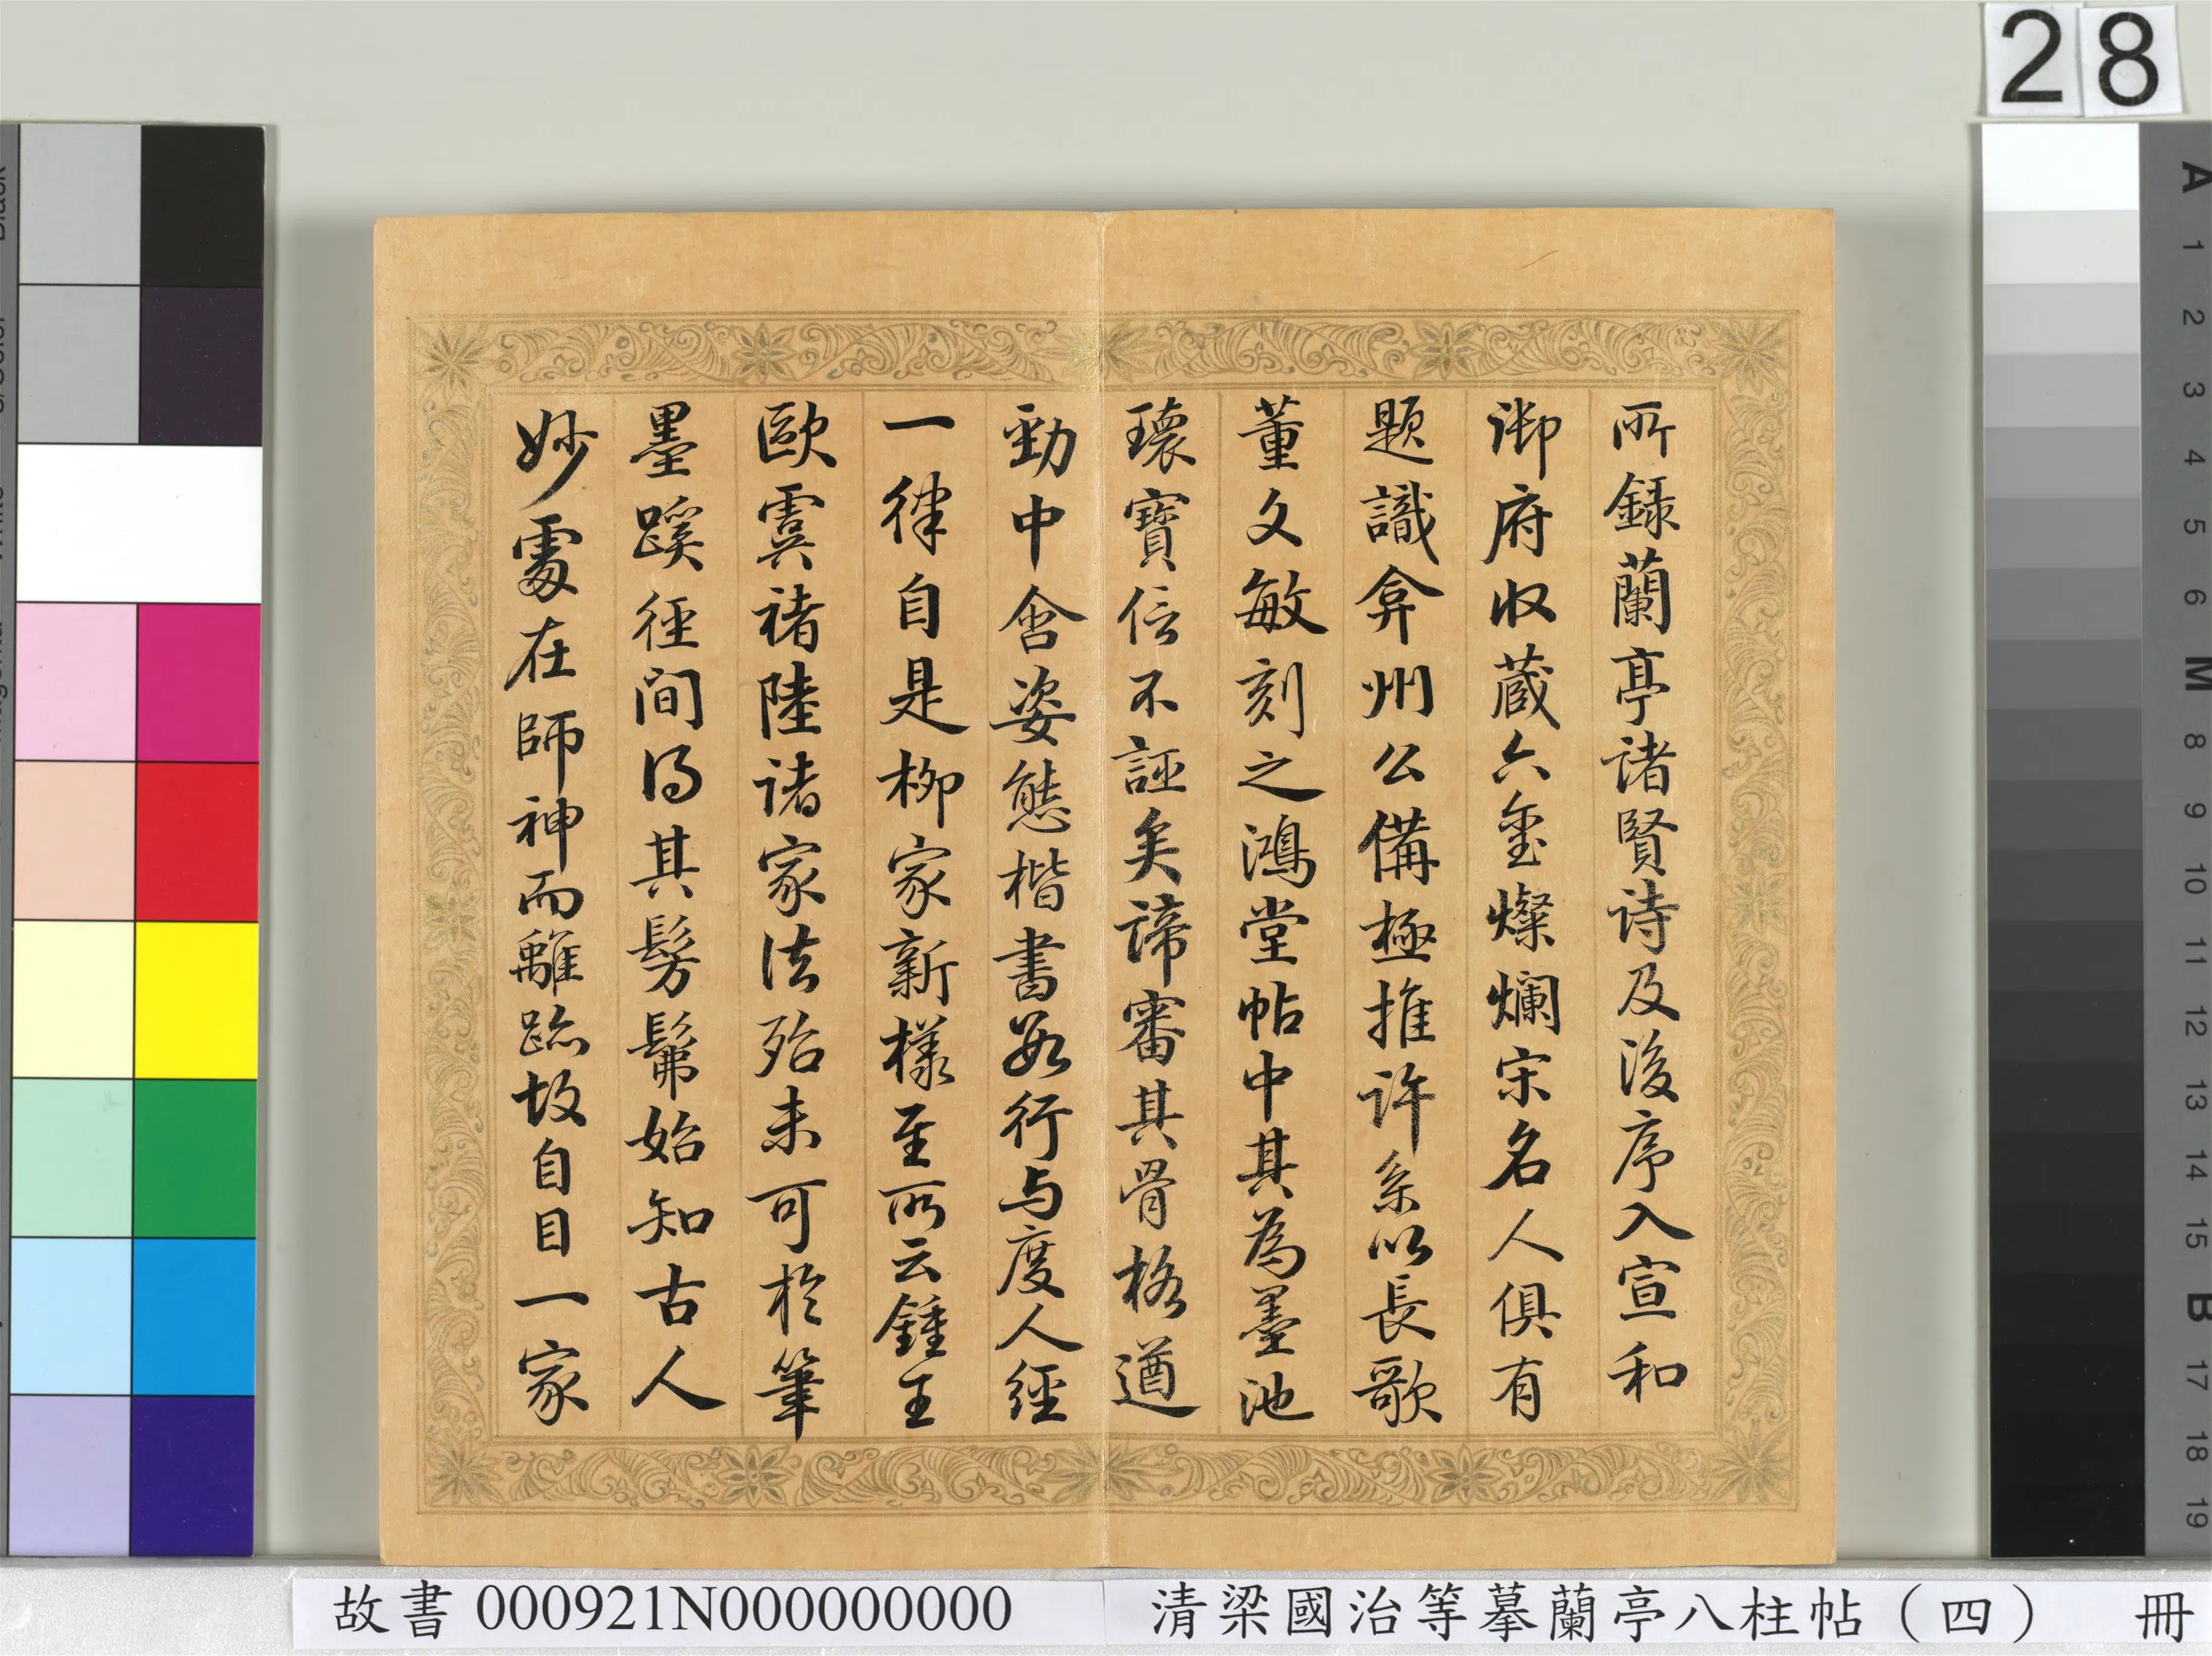 所錄蘭亭諸賢诗及後序入宣和
御府收蔵六璽燦爛宋名人俱有
题識弇州公備極推许系以長歌
董文敏刻之鴻堂帖中其為墨池
瓌寶信不誣矣諦審其骨格遒
勁中含姿態楷書數行与度人經
一律自是柳家新樣至所云鍾王
歐虞褚陸诸家法殆未可於筆
墨蹊徑间得其髣髴始知古人
妙處在師神而離跡故自目一家
28
故書 000921N000000000 清梁國治等摹蘭亭八柱帖（四） 冊
A 1 2 3 4 5 6 M 8 9 10 11 12 13 14 15 B 17 18 19